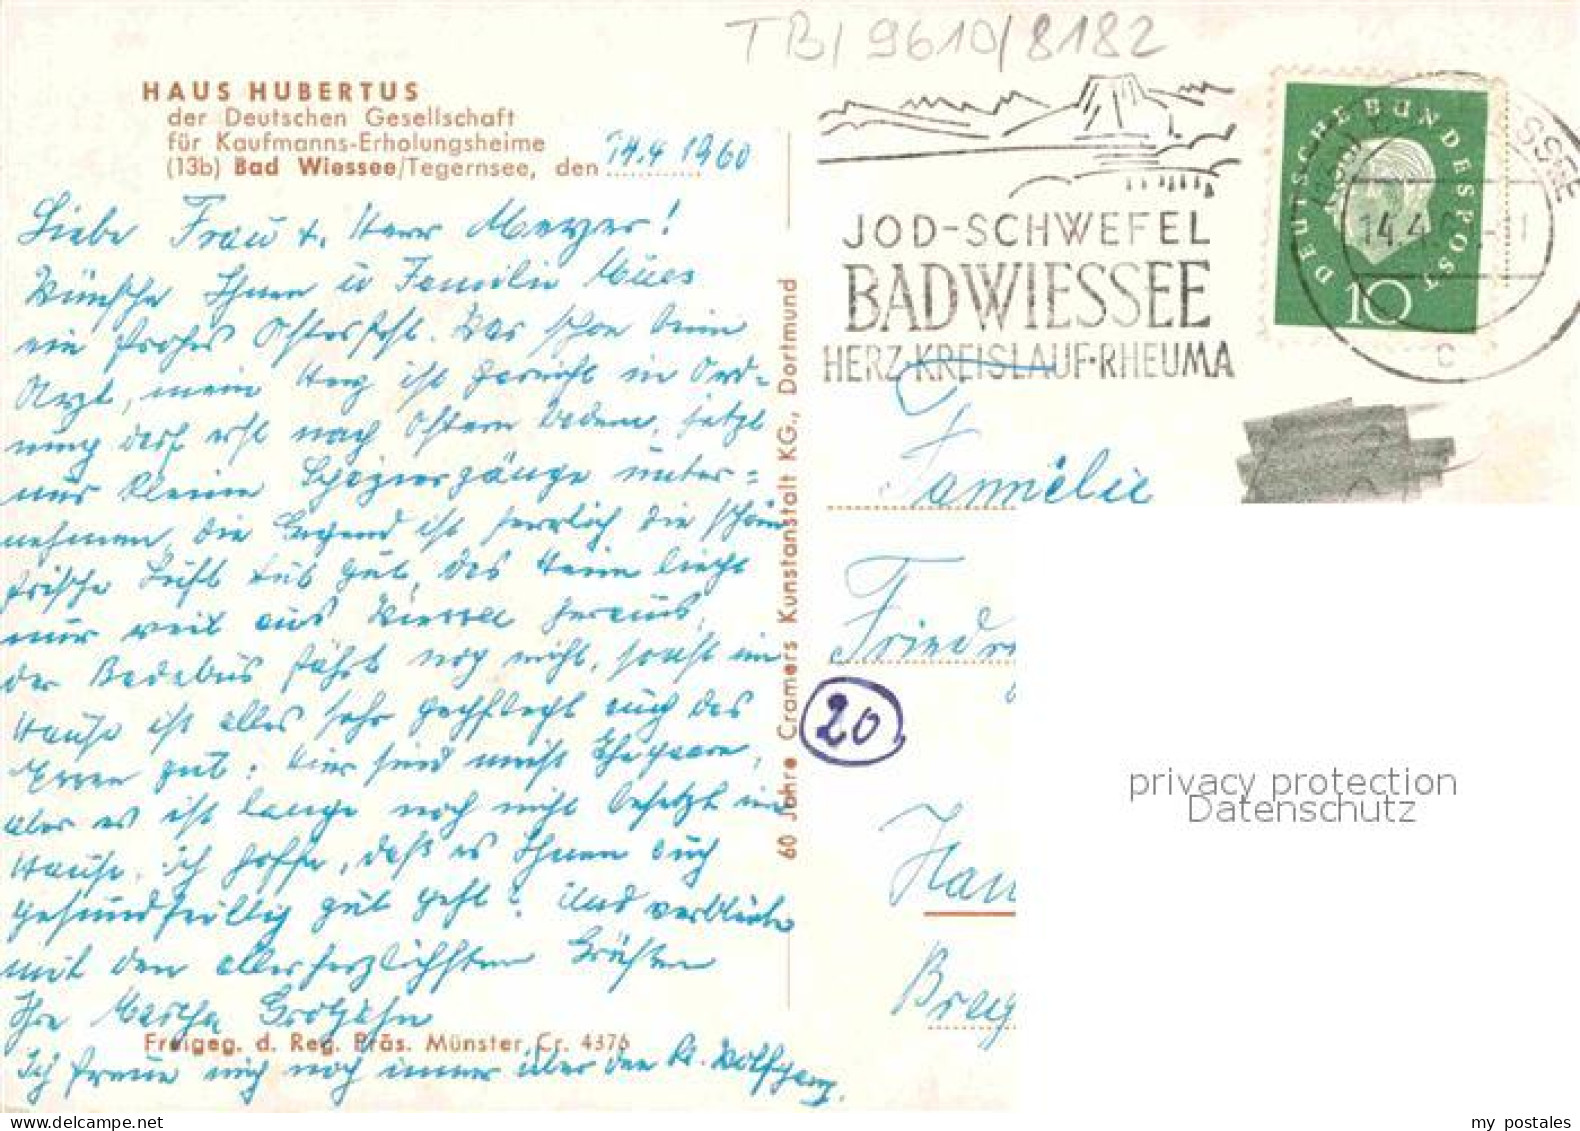 TB/9610/8182
HAUS HUBERTUS
der Deutschen Gesellschaft
für Kaufmanns-Erholungsheime
(13b) Bad Wiessee/Tegernsee, den 14.4 1960
Liebe Frau u. Herr Meyer!
Wünsche Ihnen u Familie
ein frohes Osterfest. War schon beim
Arzt, mein Herz ist in Ord=
nung darf erst nach Ostern baden, jetzt
nur kleine Spaziergänge unter=
nehmen, die Gegend ist herrlich die schöne
frische Luft tut gut, das Heim liegt
nur weit aus Wiessee heraus,
der Badebus fährt noch nicht, sonst im
Hause ist alles sehr gepflegt auch das
Essen gut. Hier sind meist Ehepaare,
aber es ist lange noch nicht besetzt im
Hause. ich hoffe, daß es Ihnen auch
gesundheitlich gut geht? Und verbleibe
mit den allerherzlichsten Grüßen
Ihre Martha Grotjahn
Freigeg. d. Reg. Präs. Münster, Cr. 4376
Ich freue mich noch immer über den St. Wolfgang.
60 Jahre Cramers Kunstanstalt KG., Dortmund
JOD-SCHWEFEL
BAD WIESSEE
HERZ·KREISLAUF·RHEUMA
DEUTSCHE BUNDESPOST
10
14.4.
c
Familie
Friedr
20
Han
privacy protection
Datenschutz
my postales